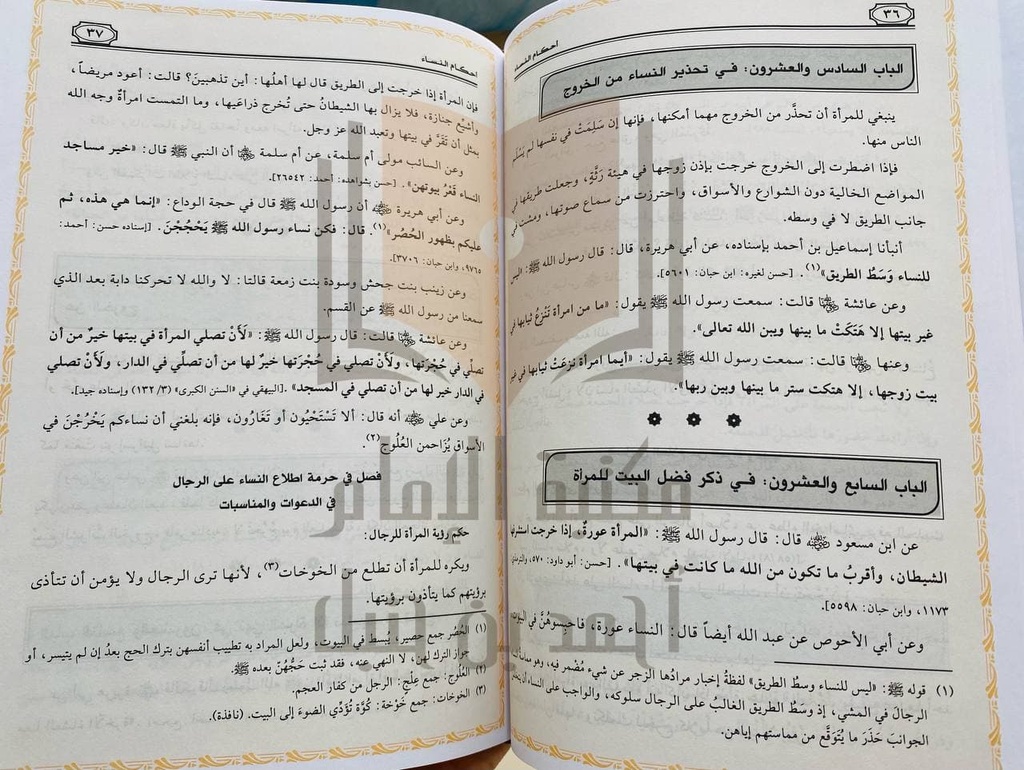 ٣٦
أحكام النساء
الباب السادس والعشرون: في تحذير النساء من الخروج
ينبغي للمرأة أن تحذَّر من الخروج مهما أمكنها، فإنها إن سَلِمَتْ في نفسها لم يَسْلَم
الناس منها.
فإذا اضطرت إلى الخروج خرجت بإذن زوجها في هيئة رَثَّةٍ، وجعلت طريقها في
المواضع الخالية دون الشوارع والأسواق، واحترزت من سماع صوتها، ومشت في
جانب الطريق لا في وسطه.
أنبأنا إسماعيل بن أحمد بإسناده، عن أبي هريرة، قال: قال رسول الله ﷺ: «ليس
للنساء وَسَطُ الطريق»(١). [حسن لغيره: ابن حبان: ٥٦٠١].
وعن عائشة رضي الله عنها قالت: سمعت رسول الله ﷺ يقول: «ما من امرأة تَنْزِعُ ثيابها في
غير بيتها إلا هَتَكَتْ ما بينها وبين الله تعالى».
وعنها رضي الله عنها قالت: سمعت رسول الله ﷺ يقول: «أيما امرأة نزعَتْ ثيابها في غير
بيت زوجها، إلا هتكت ستر ما بينها وبين ربها».
الباب السابع والعشرون: في ذكر فضل البيت للمرأة
عن ابن مسعود رضي الله عنه قال: قال رسول الله ﷺ: «المرأة عورةٌ، إذا خرجت استشرفها
الشيطان، وأقربُ ما تكون من الله ما كانت في بيتها». [حسن: أبو داود: ٥٧٠، والترمذي:
١١٧٣، وابن حبان: ٥٥٩٨].
وعن أبي الأحوص عن عبد الله أيضاً قال: النساء عورة، فاحبِسوهُنَّ في البيوت،
(١) قوله ﷺ: «ليس للنساء وسطُ الطريق» لفظةُ إخبار مرادُها الزجر عن شيء مُضْمر فيه، وهو مماسَّة النساء
الرجالَ في المشي، إذ وَسَطُ الطريق الغالبُ على الرجال سلوكه، والواجب على النساء أن يتخللن
الجوانبَ حَذَرَ ما يُتَوَقَّع من مماستهم إياهن.
٣٧
أحكام النساء
فإن المرأة إذا خرجت إلى الطريق قال لها أهلُها: أين تذهبين؟ قالت: أعود مريضاً،
وأشيِّع جنازة، فلا يزال بها الشيطانُ حتى تُخرج ذراعيها، وما التمست امرأةٌ وجه الله
بمثل أن تَقَرَّ في بيتها وتعبد الله عز وجل.
وعن السائب مولى أم سلمة، عن أم سلمة رضي الله عنها أن النبي ﷺ قال: «خير مساجد
النساء قَعْرُ بيوتهن». [حسن بشواهده: أحمد: ٢٦٥٤٢].
وعن أبي هريرة رضي الله عنه أن رسول الله ﷺ قال في حجة الوداع: «إنما هي هذه، ثم
عليكم بظهور الحُصُر»(١). قال: فكن نساء رسول الله ﷺ يَحْجُجْنَ. [إسناده حسن: أحمد:
٩٧٦٥، وابن حبان: ٣٧٠٦].
وعن زينب بنت جحش وسودة بنت زمعة قالتا: لا والله لا تحركنا دابة بعد الذي
سمعنا من رسول الله ﷺ عن القسم.
وعن عائشة رضي الله عنها قالت: قال رسول الله ﷺ: «لَأَنْ تصلي المرأة في بيتها خيرٌ من أن
تصلِّي في حُجْرَتها، ولَأَنْ تصلي في حُجْرتها خيرٌ لها من أن تصلِّي في الدار، ولَأَنْ تصلي
في الدار خير لها من أن تصلي في المسجد». [البيهقي في «السنن الكبرى» (٣/ ١٣٢) وإسناده جيد].
وعن علي رضي الله عنه أنه قال: ألا تَسْتَحْيُون أو تَغَارُون، فإنه بلغني أن نساءكم يَخْرُجْنَ في
الأسواق يُزَاحمن العُلُوج(٢).
فصل في حرمة اطلاع النساء على الرجال
في الدعوات والمناسبات
حكم رؤية المرأة للرجال:
ويكره للمرأة أن تطلع من الخوخات(٣)، لأنها ترى الرجال ولا يؤمن أن تتأذى
برؤيتهم كما يتأذون برؤيتها.
(١) الحُصُر جمع حصير، يُبسط في البيوت، ولعل المراد به تطييب أنفسهن بترك الحج بعدُ إن لم يتيسر، أو
جواز الترك لهن، لا النهي عنه، فقد ثبت حَجُّهُنّ بعده ﷺ.
(٢) العُلُوج: جمع عِلْج: الرجل من كفار العجم.
(٣) الخوخات: جمع خَوْخَة: كُوَّة تُؤدِّي الضوءَ إلى البيت. (نافذة).
مكتبة الإمام
أحمد بن حنبل